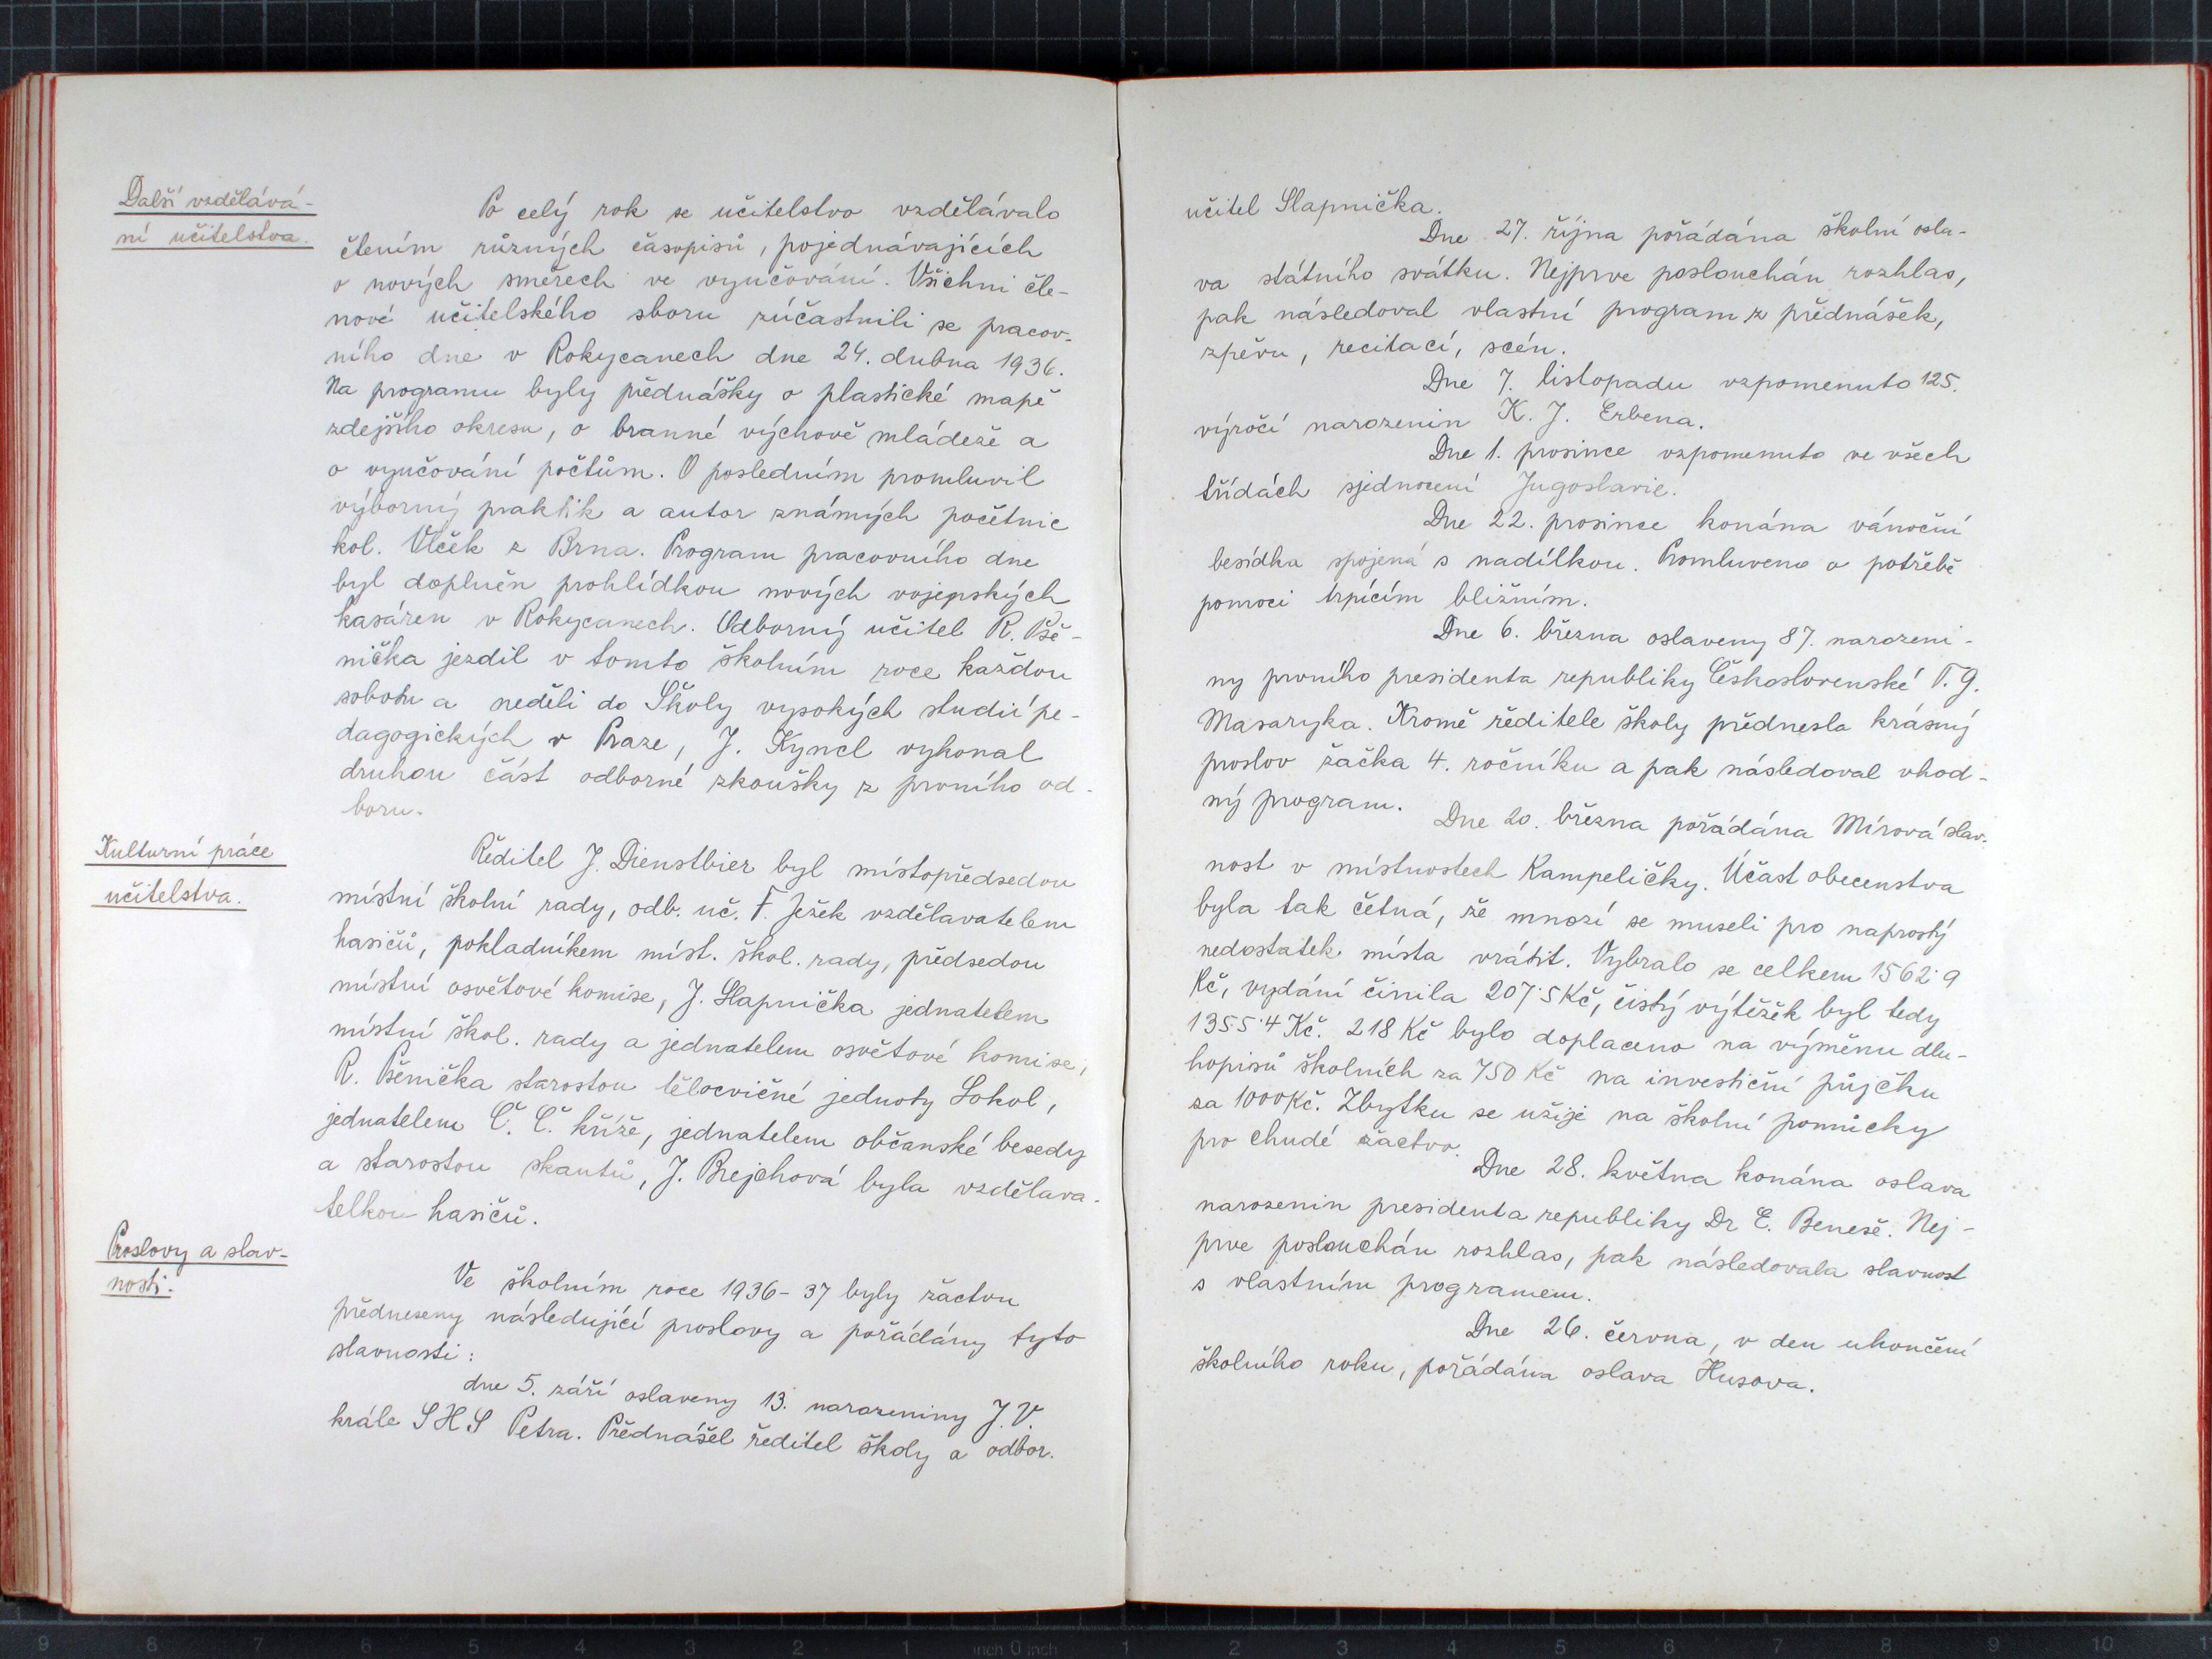 Další vzdělává-
ní učitelstva.
Po celý rok se učitelstvo vzdělávalo
čtením různých časopisů, pojednávajících
o nových směrech ve vyučování. Všichni čle-
nové učitelského sboru zúčastnili se pracov-
ního dne v Rokycanech dne 24. dubna 1936.
Na programu byly přednášky o plastické mapě
zdejšího okresu, o branné výchově mládeže a
o vyučování počtům. O posledním promluvil
výborný praktik a autor známých početnic
kol. Vlček z Brna. Program pracovního dne
byl doplněn prohlídkou nových vojenských
kasáren v Rokycanech. Odborný učitel R. Pše-
nička jezdil v tomto školním roce každou
sobotu a neděli do Školy vysokých studií pe-
dagogických v Praze, J. Kyncl vykonal
druhou část odborné zkoušky z prvního od-
boru.
Kulturní práce
učitelstva.
Ředitel J. Dienstbier byl místopředsedou
místní školní rady, odb. uč. F. Ježek vzdělavatelem
hasičů, pokladníkem míst. škol. rady, předsedou
místní osvětové komise, J. Slapnička jednatelem
místní škol. rady a jednatelem osvětové komise,
R. Pšenička starostou tělocvičné jednoty Sokol,
jednatelem Č. Č. kříže, jednatelem občanské besedy
a starostou skautů, J. Brejchová byla vzdělava-
telkou hasičů.
Proslovy a slav-
nosti.
Ve školním roce 1936-37 byly žactvu
předneseny následující proslovy a pořádány tyto
slavnosti:
dne 5. září oslaveny 13. narozeniny J. V.
krále SHS Petra. Přednášel ředitel školy a odbor.
učitel Slapnička.
Dne 27. října pořádána školní osla-
va státního svátku. Nejprve poslouchán rozhlas,
pak následoval vlastní program z přednášek,
zpěvu, recitací, scén.
Dne 7. listopadu vzpomenuto 125.
výročí narozenin K. J. Erbena.
Dne 1. prosince vzpomenuto ve všech
třídách sjednocení Jugoslavie.
Dne 22. prosince konána vánoční
besídka spojená s nadílkou. Promluveno o potřebě
pomoci trpícím bližním.
Dne 6. března oslaveny 87. narozeni-
ny prvního presidenta republiky Československé T. G.
Masaryka. Kromě ředitele školy přednesla krásný
proslov žačka 4. ročníku a pak následoval vhod-
ný program.
Dne 20. března pořádána Mírová slav-
nost v místnostech Kampeličky. Účast obecenstva
byla tak četná, že mnozí se museli pro naprostý
nedostatek místa vrátit. Vybralo se celkem 1562·9
Kč, vydání činila 207·5 Kč, čistý výtěžek byl tedy
1355·4 Kč. 218 Kč bylo doplaceno na výměnu dlu-
hopisů školních za 750 Kč na investiční půjčku
za 1000 Kč. Zbytku se užije na školní pomůcky
pro chudé žactvo.
Dne 28. května konána oslava
narozenin presidenta republiky Dr E. Beneše. Nej-
prve poslouchán rozhlas, pak následovala slavnost
s vlastním programem.
Dne 26. června, v den ukončení
školního roku, pořádána oslava Husova.
9 8 7 6 5 4 3 2 1 inch 0 inch 1 2 3 4 5 6 7 8 9 10 1